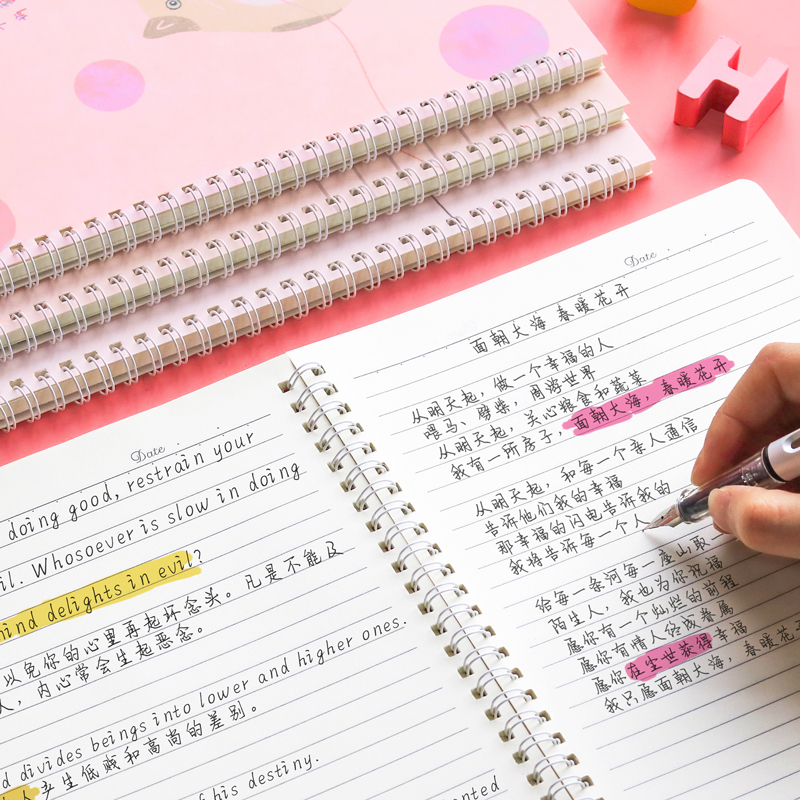 Date
doing good, restrain your
il. Whosoever is slow in doing
mind delights in evil?
以免你的心里再起坏念头。凡是不能及
人，内心常会生起恶念。
d divides beings into lower and higher ones.
产生低贱和高尚的差别。
f his destiny.
Date
面朝大海 春暖花开
从明天起，做一个幸福的人
喂马、劈柴，周游世界
从明天起，关心粮食和蔬菜
我有一所房子，面朝大海，春暖花开
从明天起，和每一个亲人通信
告诉他们我的幸福
那幸福的闪电告诉我的
我将告诉每一个人
给每一条河每一座山取
陌生人，我也为你祝福
愿你有一个灿烂的前程
愿你有情人终成眷属
愿你在尘世获得幸福
我只愿面朝大海，春暖花开
H